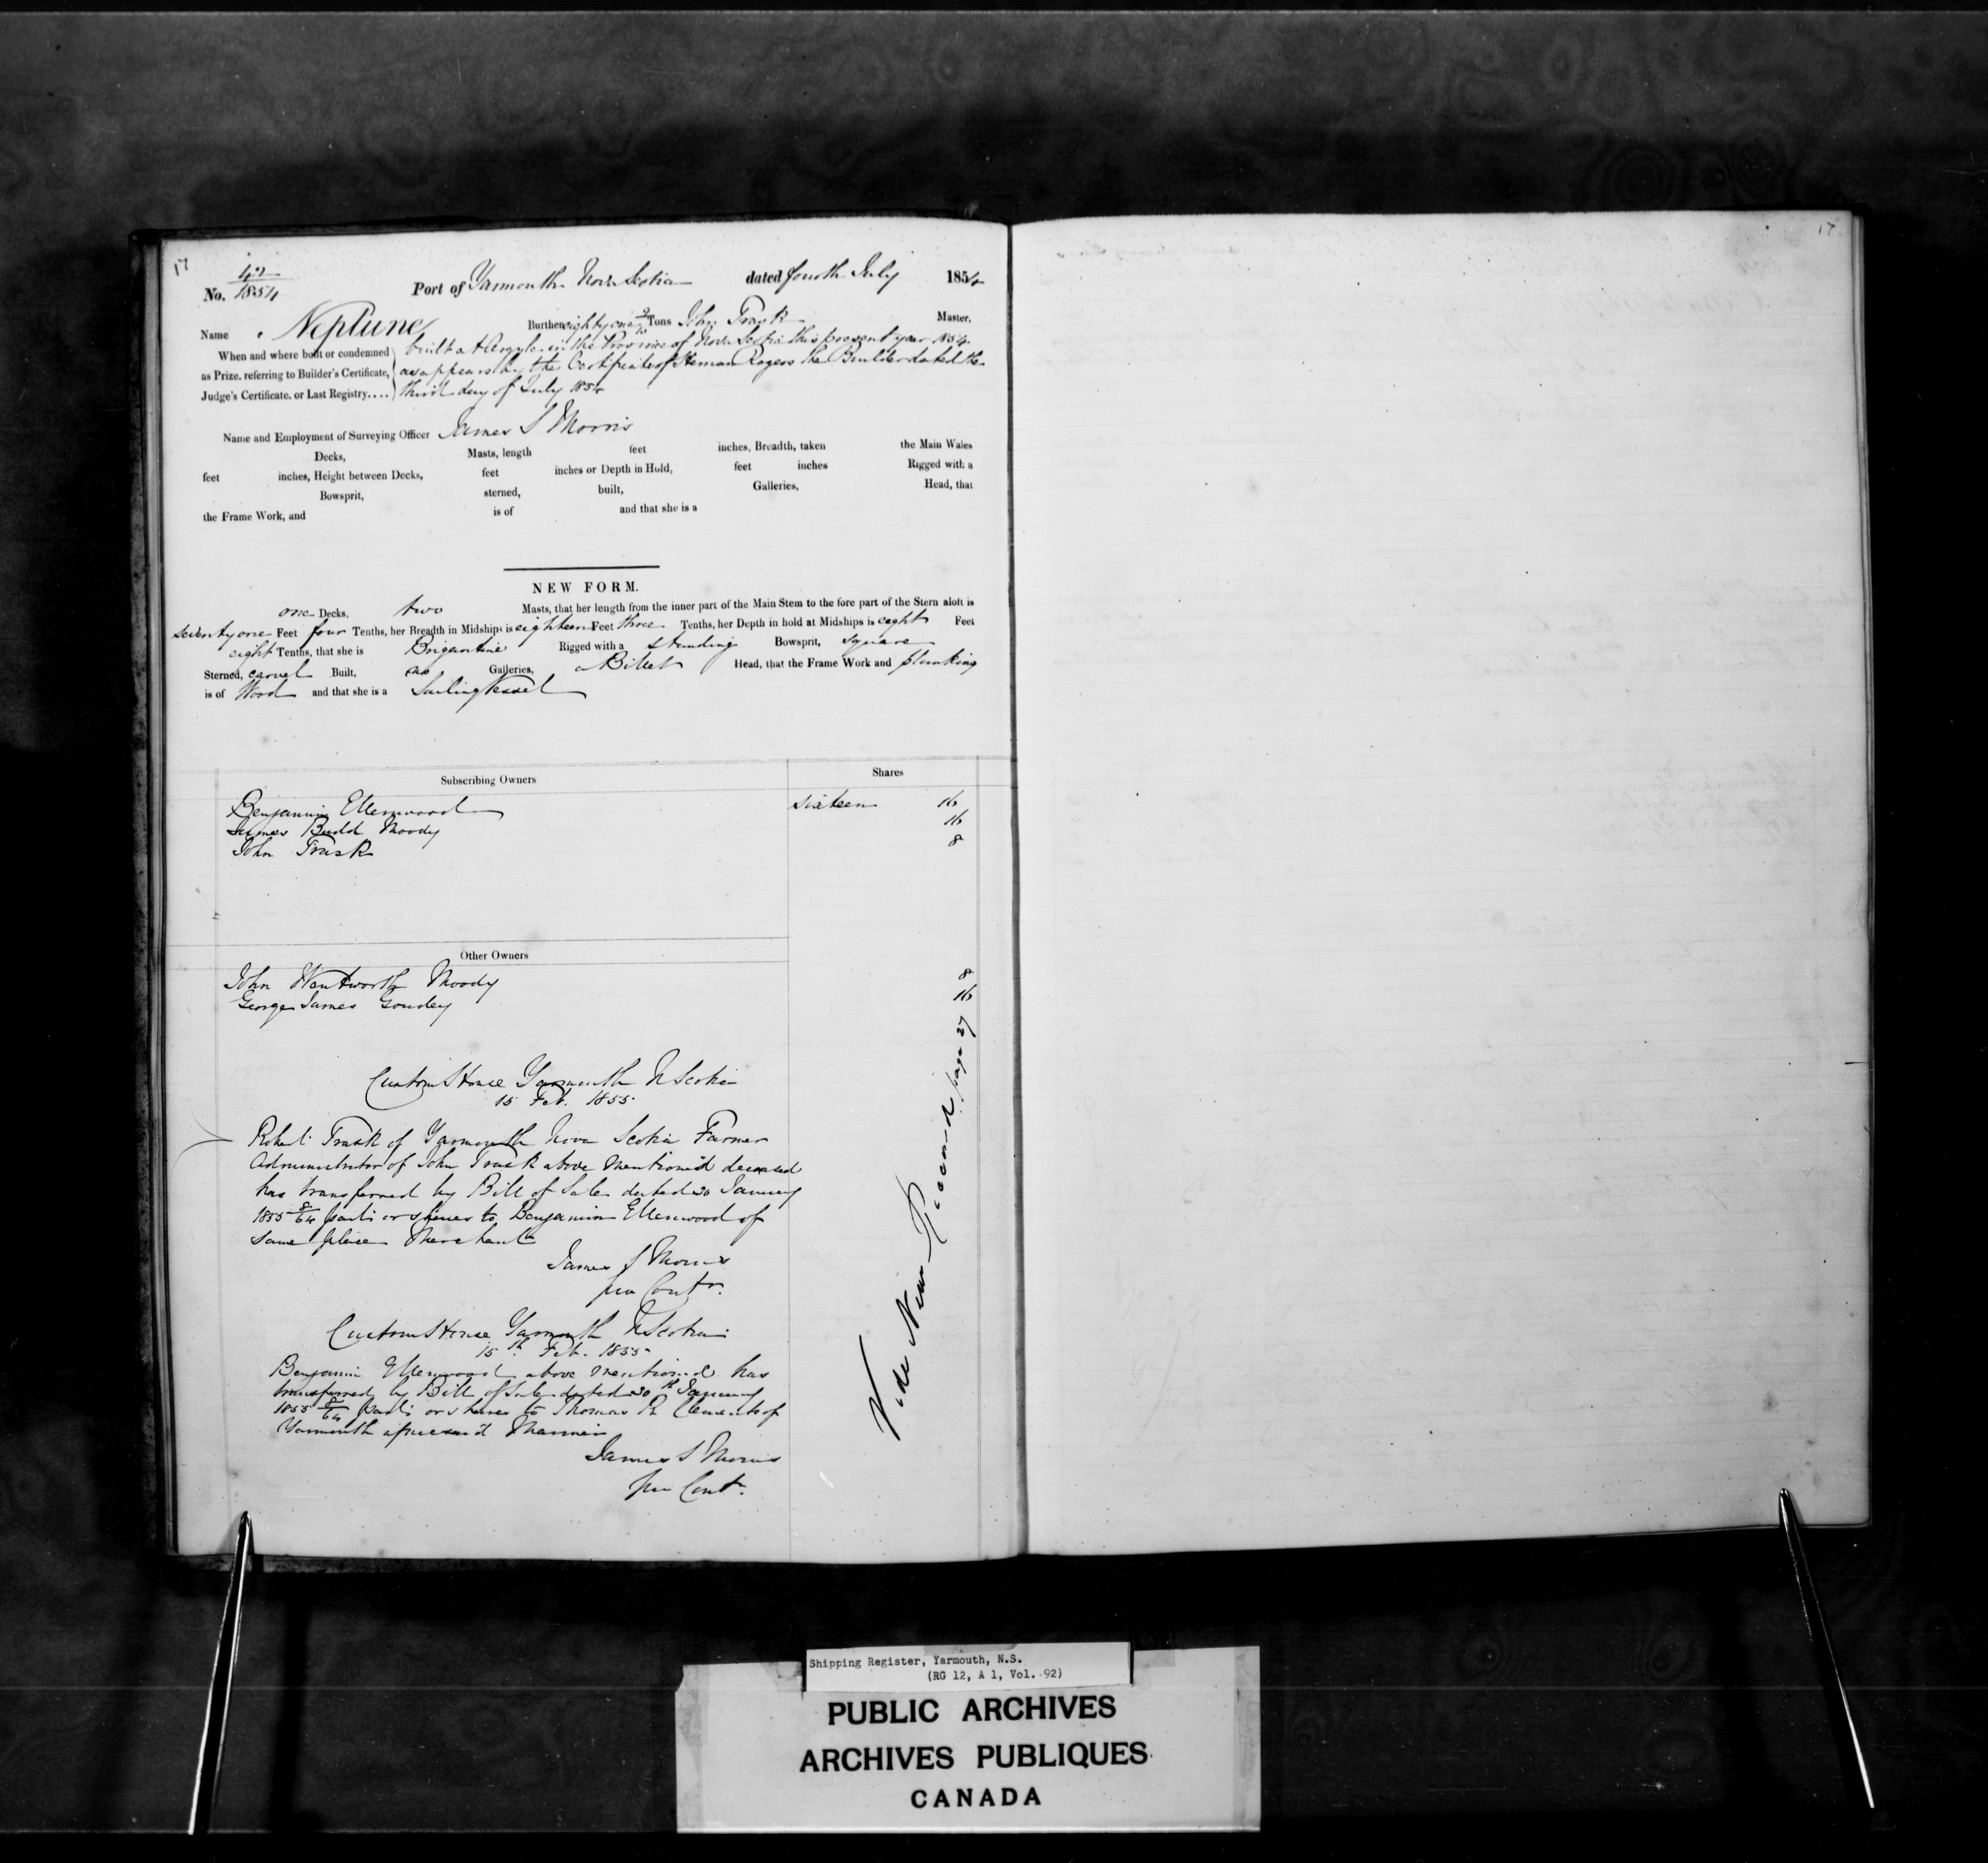 17
17
No. 42/1854 Port of Yarmouth Nova Scotia dated fourth July 1854
Name Neptune Burthen eighty one 2/10 Tons John Trask Master.
When and where built or condemned built at Argyle in the Province of Nova Scotia this present year 1854
as Prize, referring to Builder's Certificate, as appears by the Certificate of Heman Rogers the Builder dated the
Judge's Certificate, or Last Registry.... third day of July 1854
Name and Employment of Surveying Officer James S Morris
Decks, Masts, length feet inches, Breadth, taken the Main Wales
feet inches, Height between Decks, feet inches or Depth in Hold, feet inches Rigged with a
Bowsprit, sterned, built, Galleries, Head, that
the Frame Work, and is of and that she is a
NEW FORM.
one Decks, two Masts, that her length from the inner part of the Main Stem to the fore part of the Stern aloft is
seventy one Feet four Tenths, her Breadth in Midships is eighteen Feet three Tenths, her Depth in hold at Midships is eight Feet
eight Tenths, that she is Brigantine Rigged with a standing Bowsprit, square
Sterned, carvel Built, no Galleries, a Billet Head, that the Frame Work and planking
is of Wood and that she is a Sailing Vessel
Subscribing Owners Shares
Benjamin Ellenwood sixteen 16
James Budd Moody 16
John Trask 8
Other Owners
John Wentworth Moody 8
George James Goudey 16
Custom House Yarmouth N Scotia
15 Feb. 1855
Robert Trask of Yarmouth Nova Scotia Farmer
Administrator of John Trask above mention'd deceased
has transferred by Bill of Sale dated 30 January
1855 8/64 parts or shares to Benjamin Ellenwood of
same place Merchant
James S Morris
pro Contr.
Custom House Yarmouth N Scotia
15th Feb. 1855
Benjamin Ellenwood above mentioned has
transferred by Bill of Sale dated 30th January
1855 8/64 parts or shares to Thomas R Clements of
Yarmouth aforesaid Mariner
James S Morris
pro Cont.
Vide New Record page 27
Shipping Register, Yarmouth, N.S.
(RG 12, A 1, Vol. 92)
PUBLIC ARCHIVES
ARCHIVES PUBLIQUES
CANADA